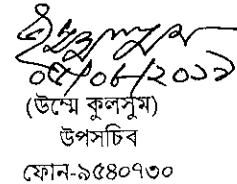 ০৫/০৮/২০১৯
(উম্মে কুলসুম)
উপসচিব
ফোন-৯৫৪০৭৩০